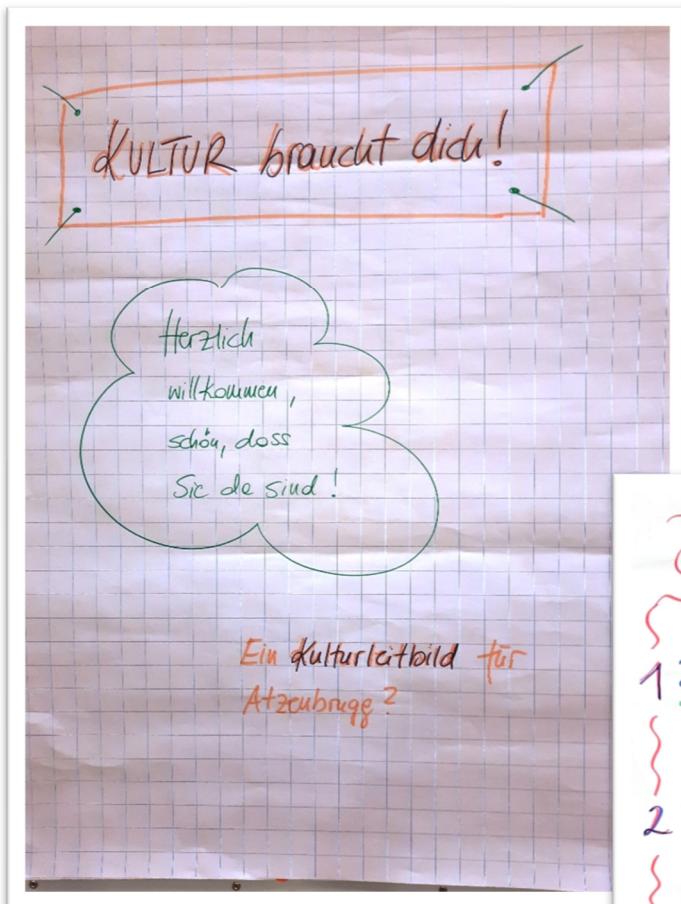 KULTUR braucht dich!
Herzlich
willkommen,
schön, dass
Sie da sind!
Ein Kulturleitbild für
Atzenbrugg?
1
2